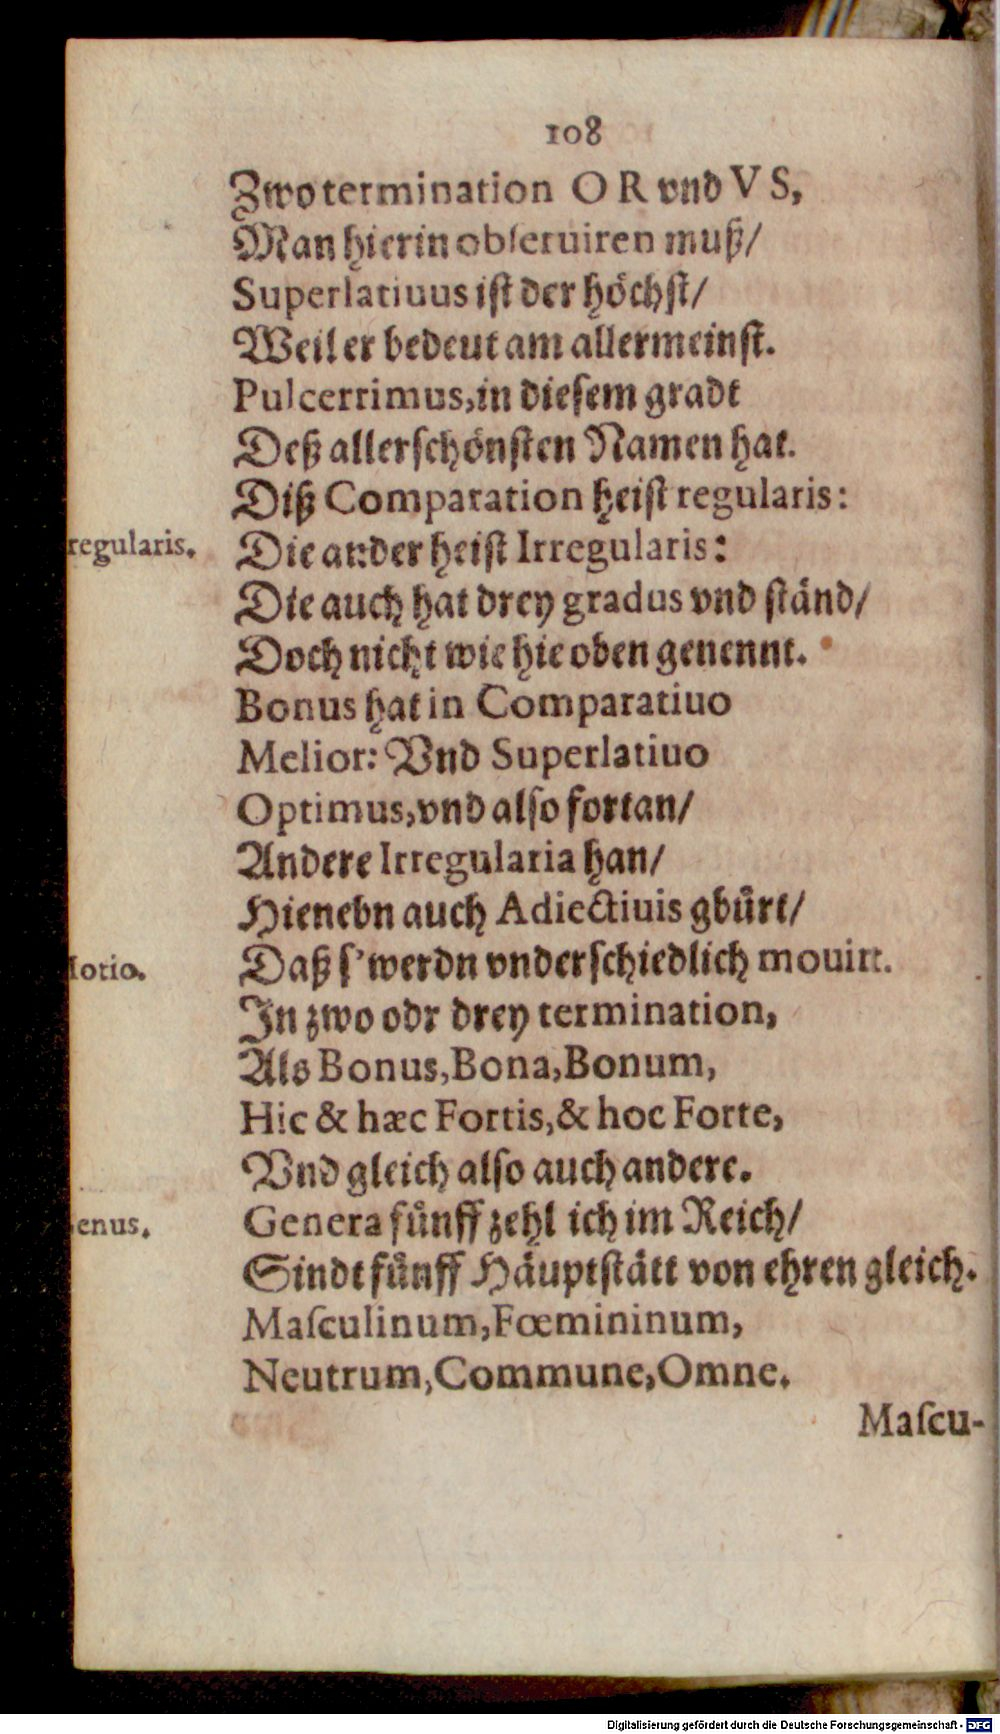 108
Zwo termination OR vnd VS,
Man hierin obſeruiren muß/
Superlatiuus iſt der höchſt/
Weil er bedeut am allermeinſt.
Pulcerrimus, in dieſem gradt
Deß allerſchönſten Namen hat.
Diß Comparation heiſt regularis:
regularis. Die ander heiſt Irregularis:
Die auch hat drey gradus vnd ſtänd/
Doch nicht wie hie oben genennt.
Bonus hat in Comparatiuo
Melior: Vnd Superlatiuo
Optimus, vnd alſo fortan/
Andere Irregularia han/
Hienebn auch Adiectiuis gbürt/
lotio. Daß ſ' werdn vnderſchiedlich mouirt.
In zwo odr drey termination,
Als Bonus, Bona, Bonum,
Hic & hæc Fortis, & hoc Forte,
Vnd gleich alſo auch andere.
enus. Genera fünff zehl ich im Reich/
Sindt fünff Häuptſtätt von ehren gleich.
Maſculinum, Fœmininum,
Neutrum, Commune, Omne.
Maſcu-
Digitalisierung gefördert durch die Deutsche Forschungsgemeinschaft - DFG